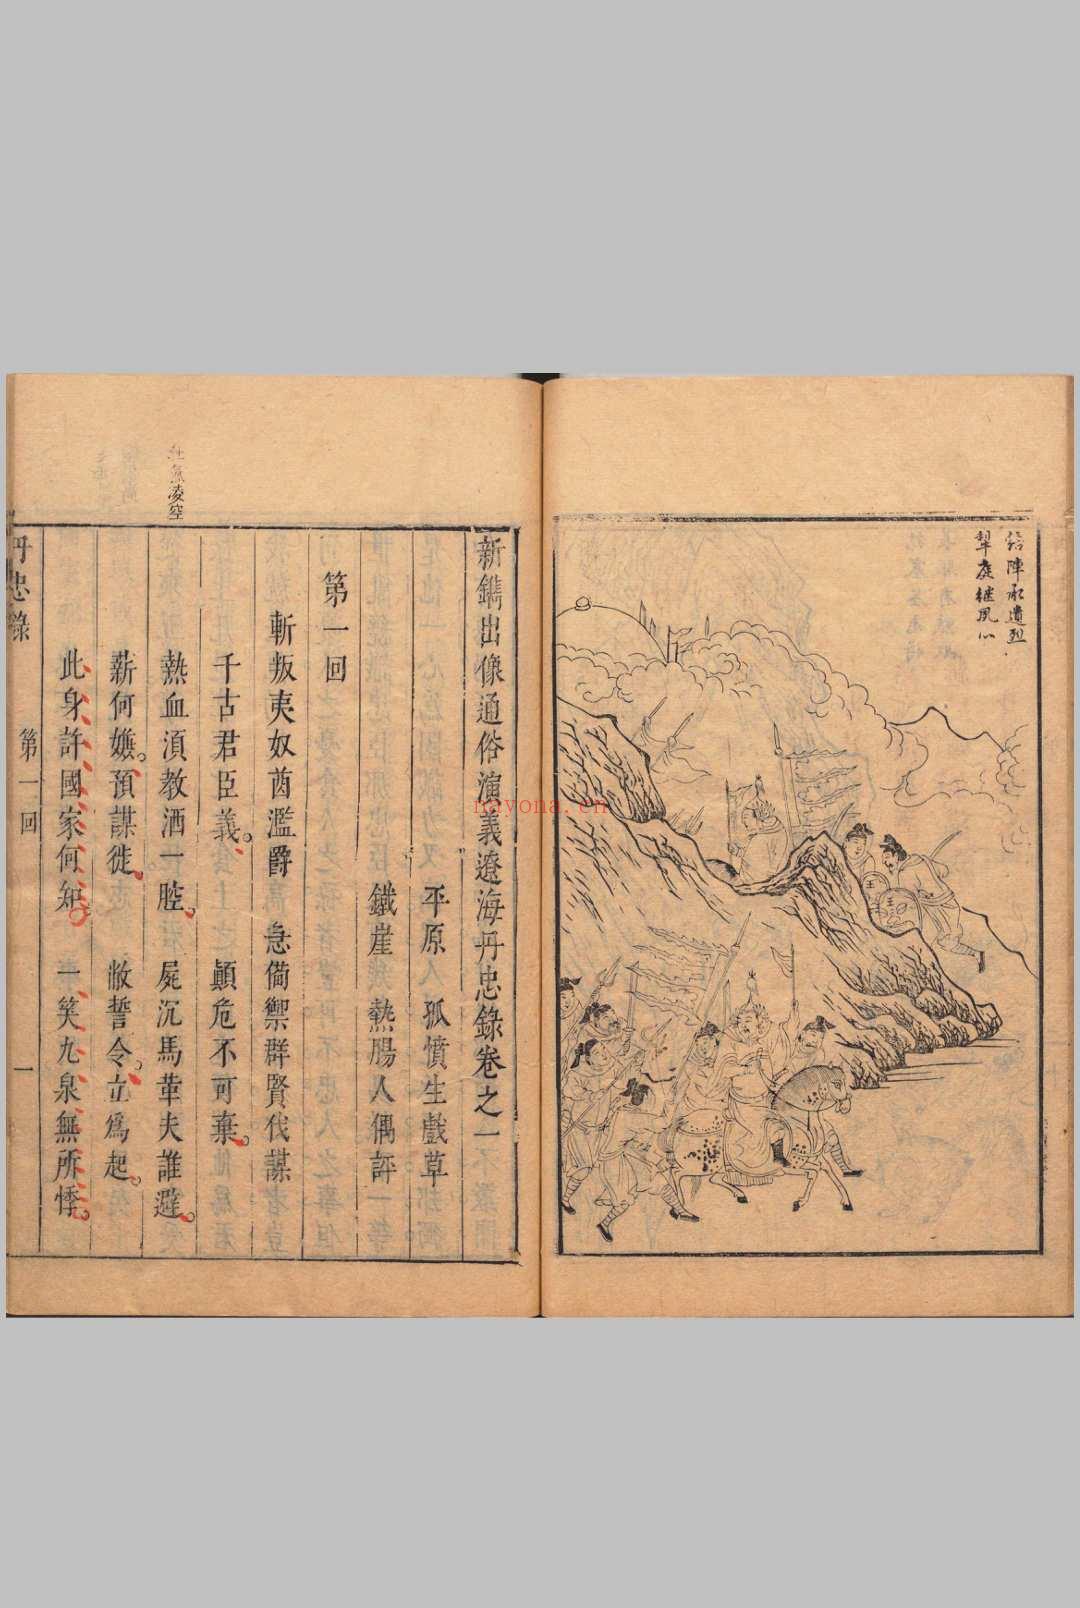 陣承遺烈
犂庭繼夙心
新鐫出像通俗演義遼海丹忠錄卷之一
平原 孤憤生戲草
鐵崖 熱腸人偶評
第一回
斬叛夷奴酋濫爵 急備禦群賢伐謀
千古君臣義。顛危不可棄。
熱血須教洒一腔。屍沉馬革夫誰避。
薪何嫌。預謀徙。敝誓令。立為起。
此身許國家何知。一笑九泉無所悸。
凌空
丹忠錄
第一回
一
nayona.cn